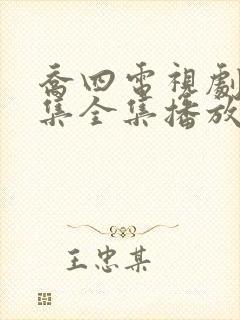 喬四電視劇
集全集播放
王忠某